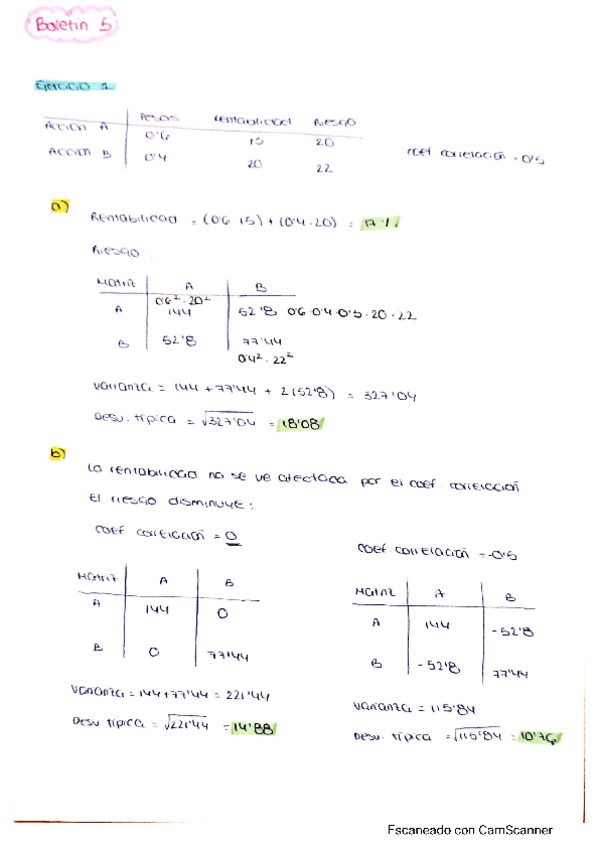 Boletín 5
Ejercicio 1.
Pesos Rentabilidad Riesgo
Acción A 0'6 15 20
Acción B 0'4 20 22
coef correlación = 0'5
a)
Rentabilidad = (0'6 · 15) + (0'4 · 20) = 17%
Riesgo:
Matriz A B
0'6² · 20²
A 144 52'8 0'6 · 0'4 · 0'5 · 20 · 22
B 52'8 77'44
0'4² · 22²
Varianza = 144 + 77'44 + 2(52'8) = 327'04
Desv. típica = √327'04 = 18'08
b)
La rentabilidad no se ve afectada por el coef correlación
El riesgo disminuye:
coef correlación = 0
Matriz A B
A 144 0
B 0 77'44
Varianza = 144 + 77'44 = 221'44
Desv típica = √221'44 = 14'88
coef correlación = -0'5
Matriz A B
A 144 -52'8
B -52'8 77'44
Varianza = 115'84
Desv. típica = √115'84 = 10'76
Escaneado con CamScanner